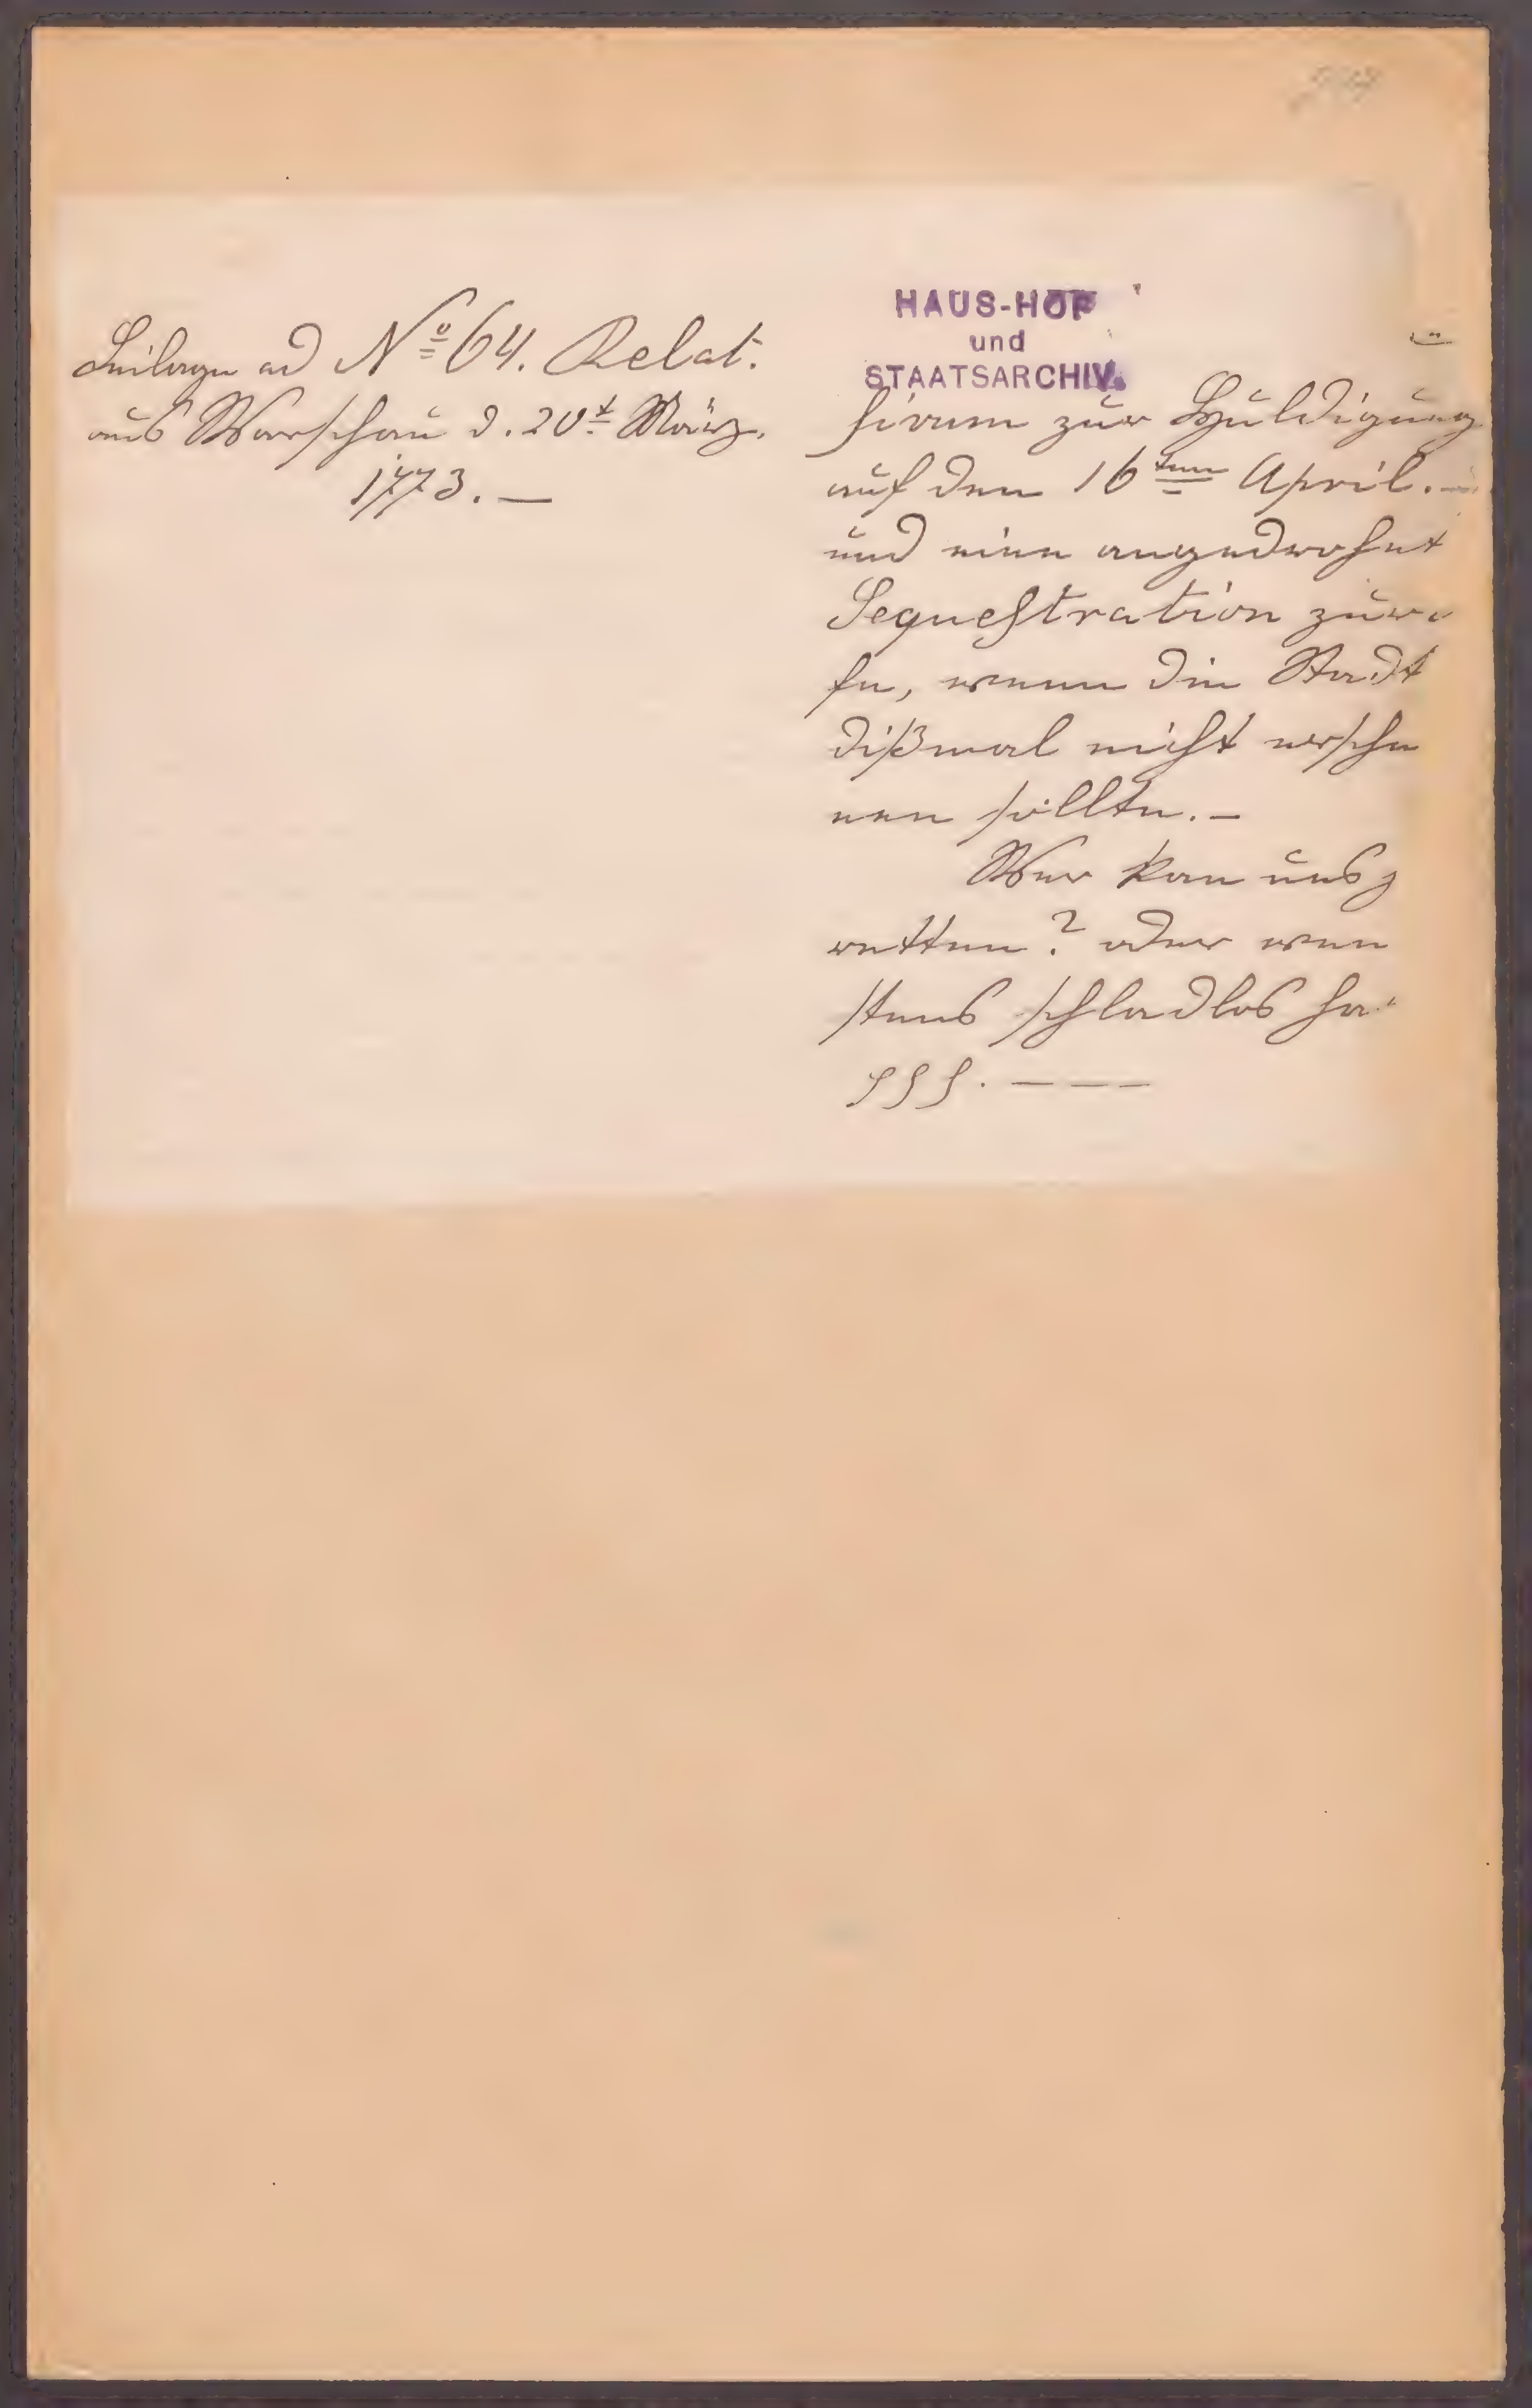 Beilage ad Nº 64. Relat.
aus Warschau d. 20t März.
1773. —
HAUS-HOF
und
STAATSARCHIV.
hirum zur Huldigung
auf den 16ten April. —
und eine angedrohet
Sequestration zuer
fe, wenn die Stadt
dißmal nicht ersche
nen sollte. —
Wer kan uns
retten? oder wen
stens schladlos ha
SSS. — — —